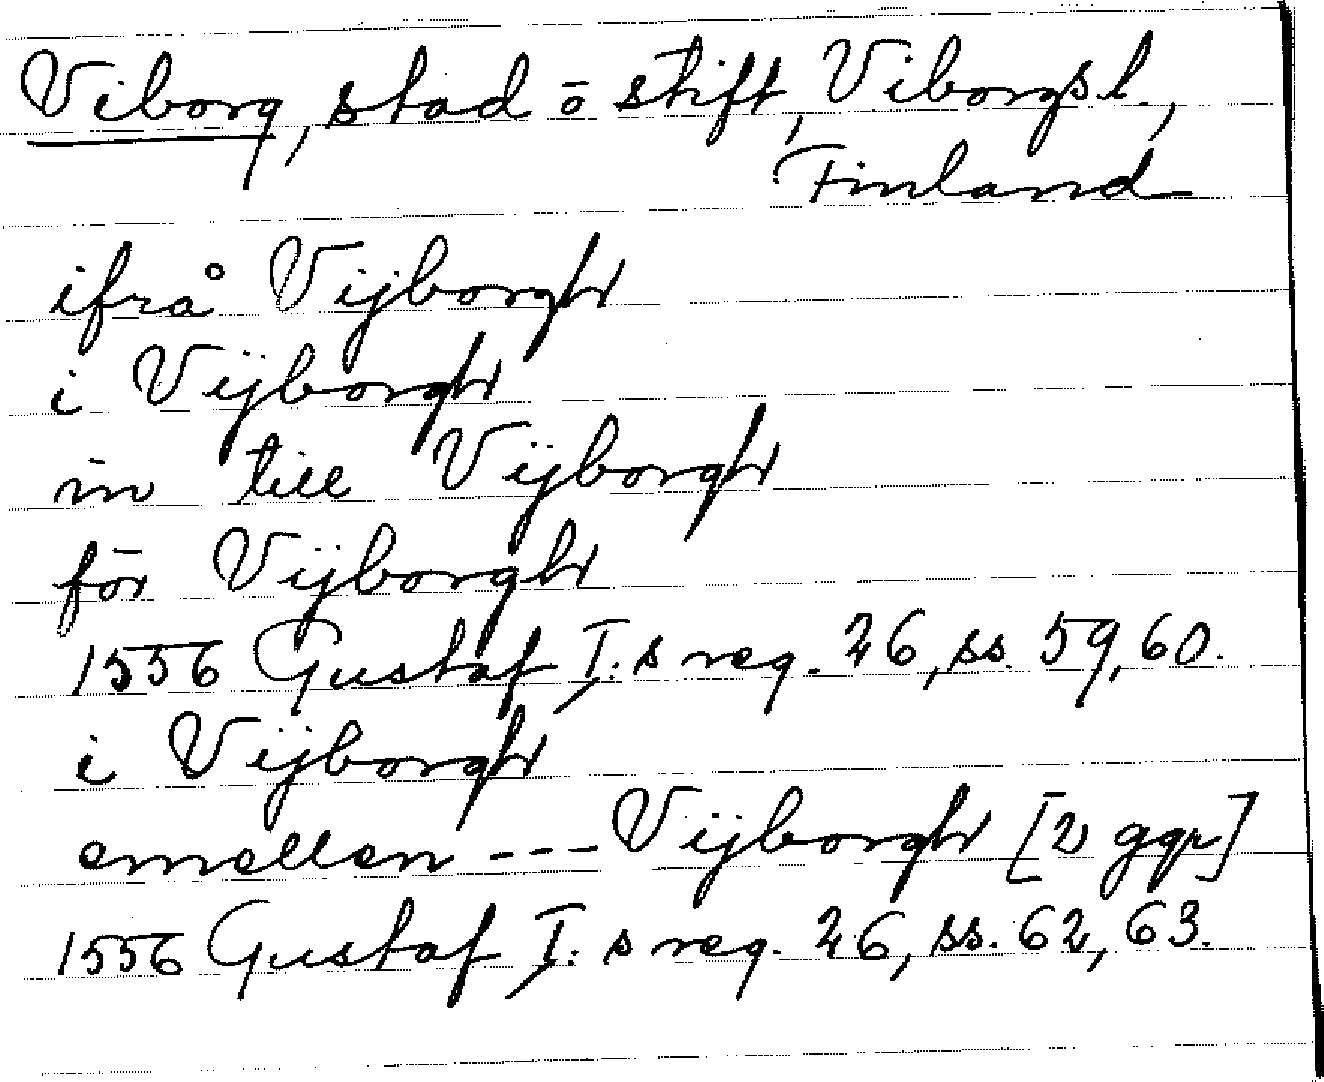 Viborg, stad o stift, Viborgs l.,
Finland
ifrå Vijborgh
i Vijborgh
in till Vijborgh
för Vijborgh
1556 Gustaf I:s reg. 26, ss. 59, 60.
i Vijborgh
emellen --- Vijborgh [2 ggr]
1556 Gustaf I:s reg. 26, ss. 62, 63.